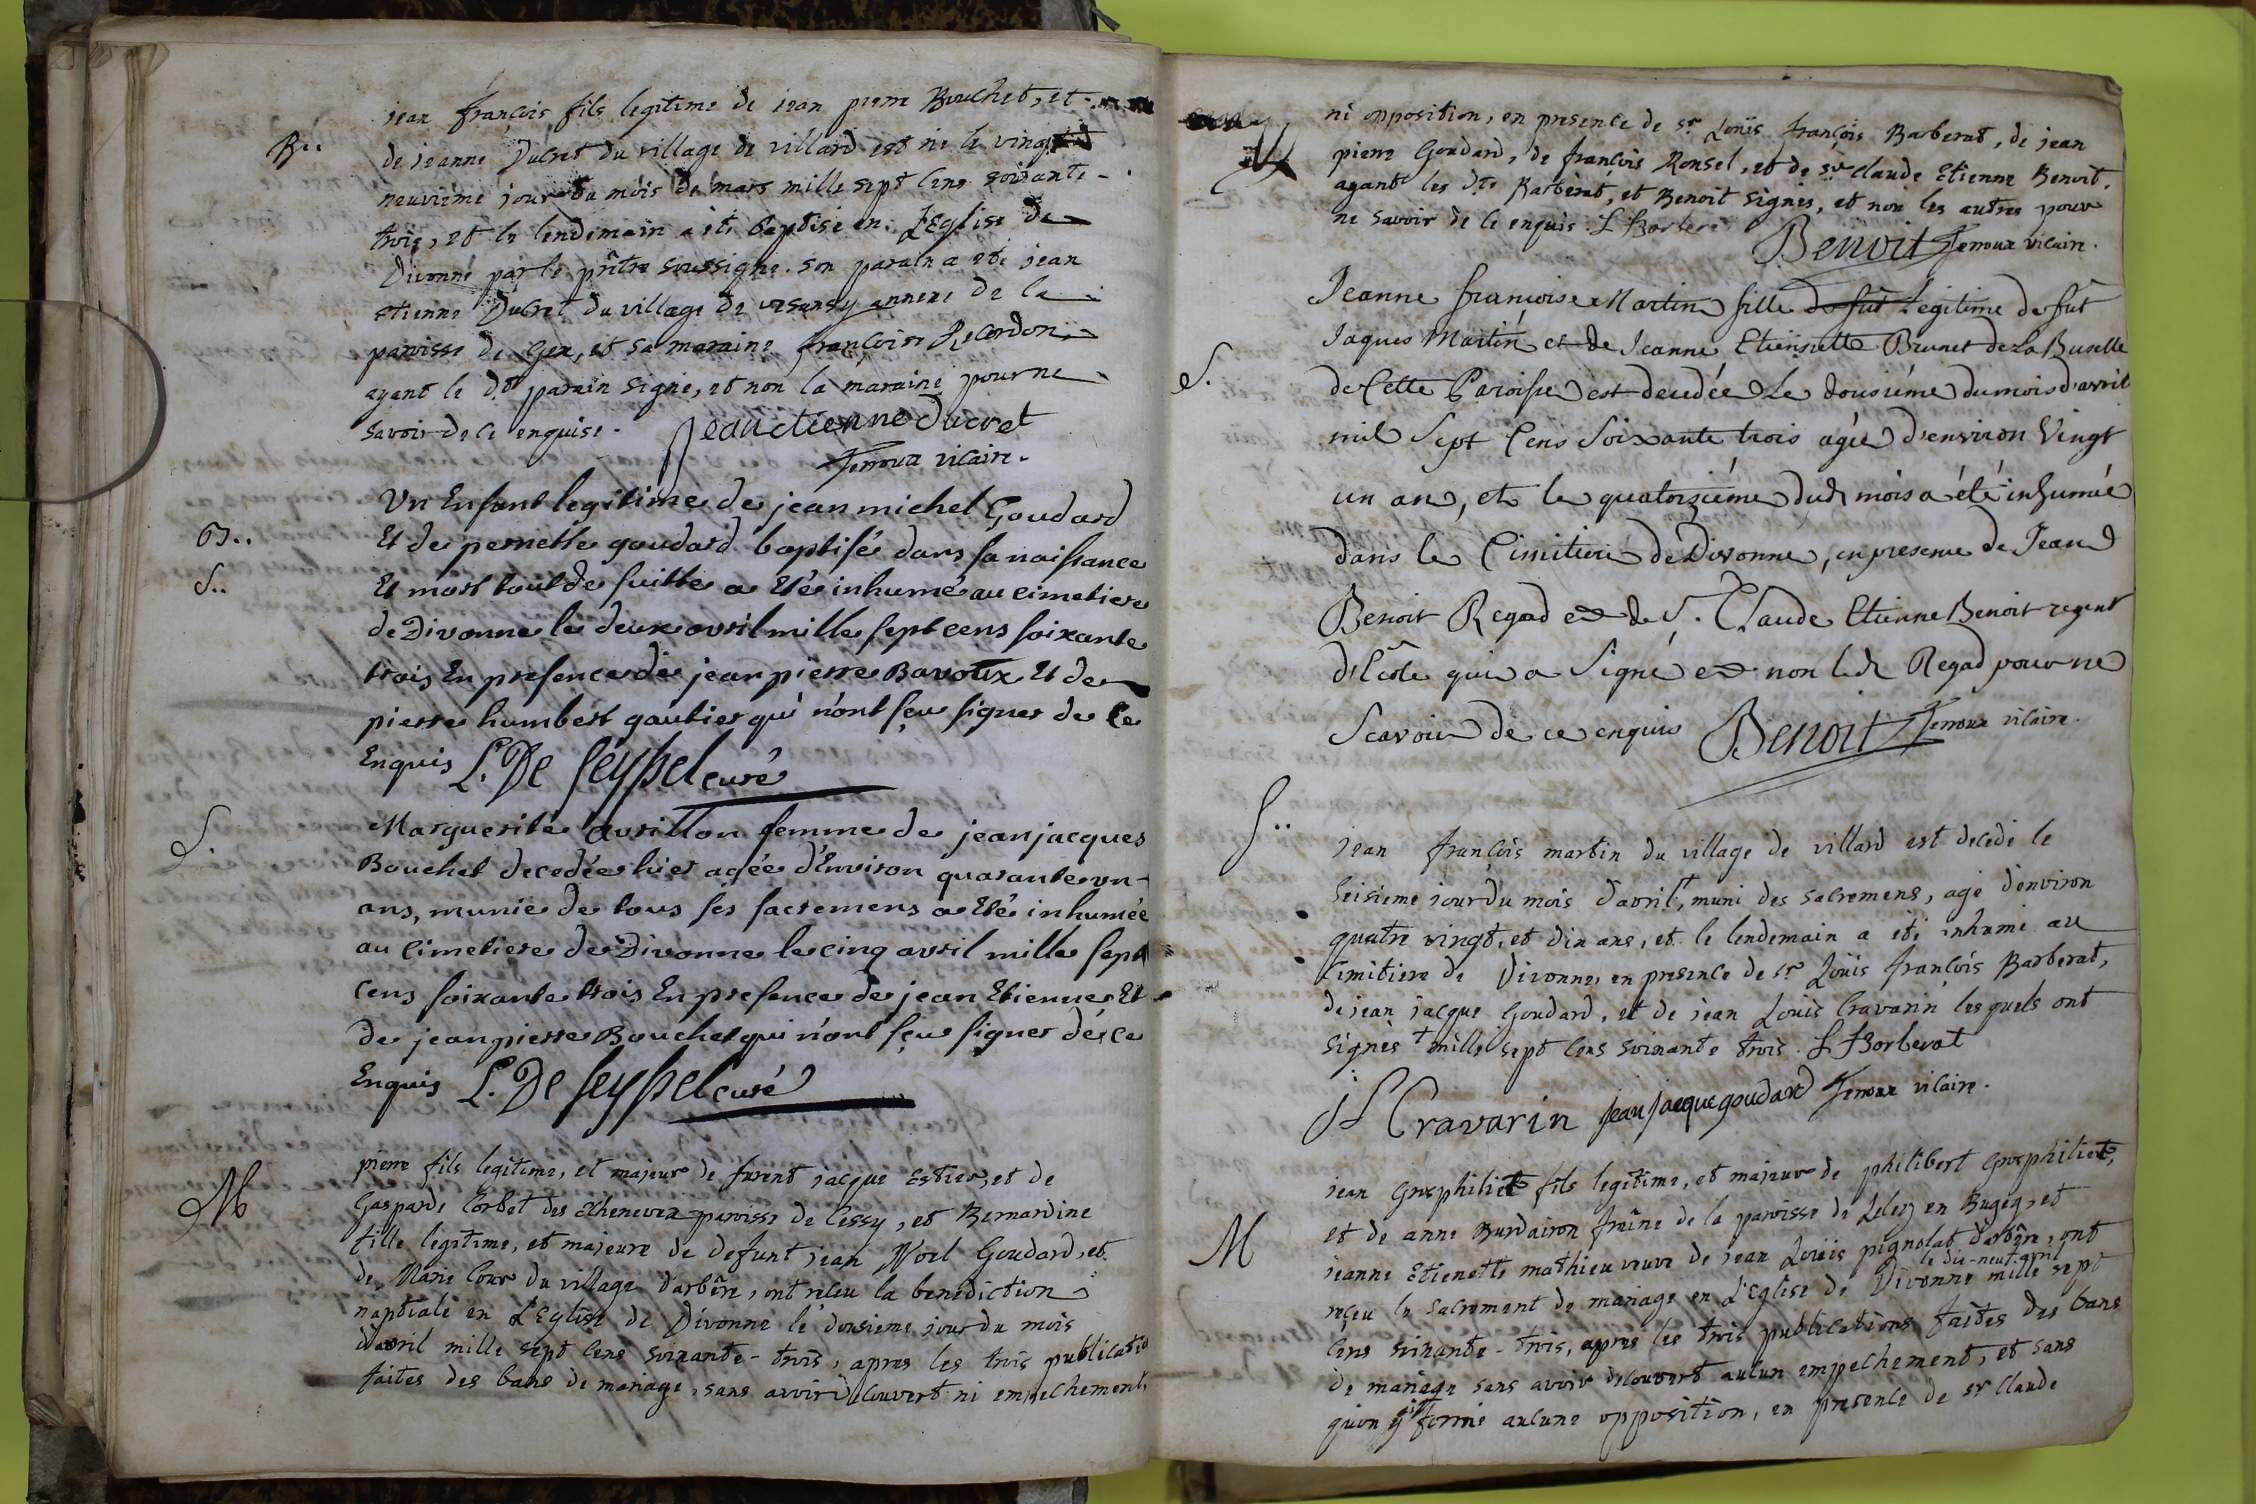 jean françois fils legitime de jean pierre Bouchet, et
B..
de jeanne Ducret du village de villard est né le vingt
neuvieme jour du mois de mars mille sept cens soixante-
trois, et le lendemain a été baptisé en L'Eglise de
Divonne par le prêtre soussigné. son parain a été jean
etienne Ducret du village de vesancy annexe de la
paroisse de Gex, et sa maraine françoise Recordon,
ayant le dt parain signé, et non la maraine pour ne
savoir de ce enquise. Jean etienne ducret
Jenoux vicaire.
Un Enfant legitime de jean michel Goudard
B..
Et de pernette goudard baptisé dans sa naissance
S..
Et mort tout de suitte a Eté inhumé au cimetiere
de Divonne le deux avril mille sept cens soixante
trois En presence de jean pierre Bavoux Et de
pierre humbert gautier qui n'ont sçeu signer de ce
Enquis L. De seyssel curé
S.
Marguerite avrillon femme de jean jacques
Bouchet decedée hier agée d'Environ quarante un
ans, munie de tous ses sacremens a Eté inhumée
au cimetiere de Divonne le cinq avril mille sept
cens soixante trois En presence de jean Etienne Et
de jean pierre Bouchet qui n'ont sçeu signer de ce
Enquis L. De seyssel curé
pierre fils legitime, et majeur de furent jacque Estier, et de
M
Gasparde Corbet des Chenevex paroisse de Cessy, et Bernardine
fille legitime, et majeure de defunt jean Noel Goudard, et
de Marie Cour du village d'arbère, ont reçeu la benediction
nuptiale en L'Eglise de Divonne le dousieme jour du mois
d'avril mille sept cens soixante-trois, apres les trois publicatio
faites des bans de mariage, sans avoir découvert ni empechement,
ni opposition, en presence de sr Loüis françois Barberat, de jean
pierre Goudard, de françois Ronsel, et de sr Claude Etienne Benoit,
ayant les dts Barberat, et Benoit signés, et non les autres pour
ne savoir de ce enquis. L Barberat Benoit Jenoux vicaire.
Jeanne françoise Martin fille de fut Legitime de fut
Jaques Martin et de Jeanne Etiennette Brunet de La Buselle
S.
de Cette Paroisse est decedée le dousiéme du mois d'avril
mil Sept Cens Soixante trois agée d'environ Vingt
un an, et le quatorziéme dud mois a été inhumée
dans le Cimitiere de Divonne, en presence de Jean
Benoit Regad et de S. Claude Etienne Benoit regent
d'Ecôle qui a Signé et non led Regad pour ne
Scavoir de ce enquis Benoit Jenoux vicaire.
S..
jean françois martin du village de villard est decedé le
seisieme jour du mois d'avril, muni des sacremens, agé d'environ
quatre vingt, et dix ans, et le lendemain a été inhumé au
cimitiere de Divonne, en presence de sr Loüis françois Barberat,
de jean jacque Goudard, et de jean Loüis Cravarin les quels ont
signés + mille sept cens soixante trois. L Barberat
JL Cravarin jean jacque goudard Jenoux vicaire.
jean Grosphiliet fils legitime, et majeur de philibert Grosphiliet,
et de anne Burdairon de la paroisse de Leley en Bugey, et
M
jeanne Etienette mathieu veuve de jean Loüis pignolat d'arbère, ont
le dix-neuf avril
reçeu le sacrement de mariage en L'Eglise de Divonne mille sept
cens soixante-trois, apres les trois publications faites des bans
de mariage sans avoir découvert aucun empechement, et sans
qu'on formé aucune opposition, en presence de sr Claude